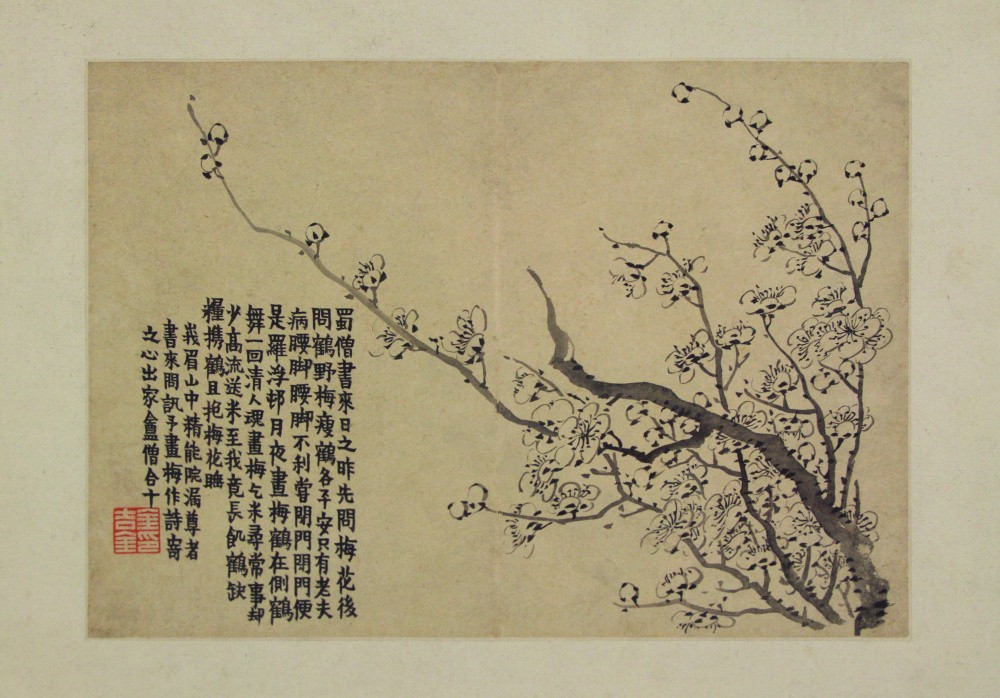 蜀僧書來日之昨先問梅花後
問鶴野梅瘦鶴各平安只有老夫
病腰脚腰脚不利嘗閉門閉門便
是羅浮邨月夜畫梅鶴在側鶴
舞一回清人魂畫梅乞米尋常事却
少髙流送米至我竟長飢鶴缺
糧携鶴且抱梅花睡
峩眉山中精能院漏尊者
書來問訊予畫梅作詩寄
之心出家盦僧合十
金印
吉金